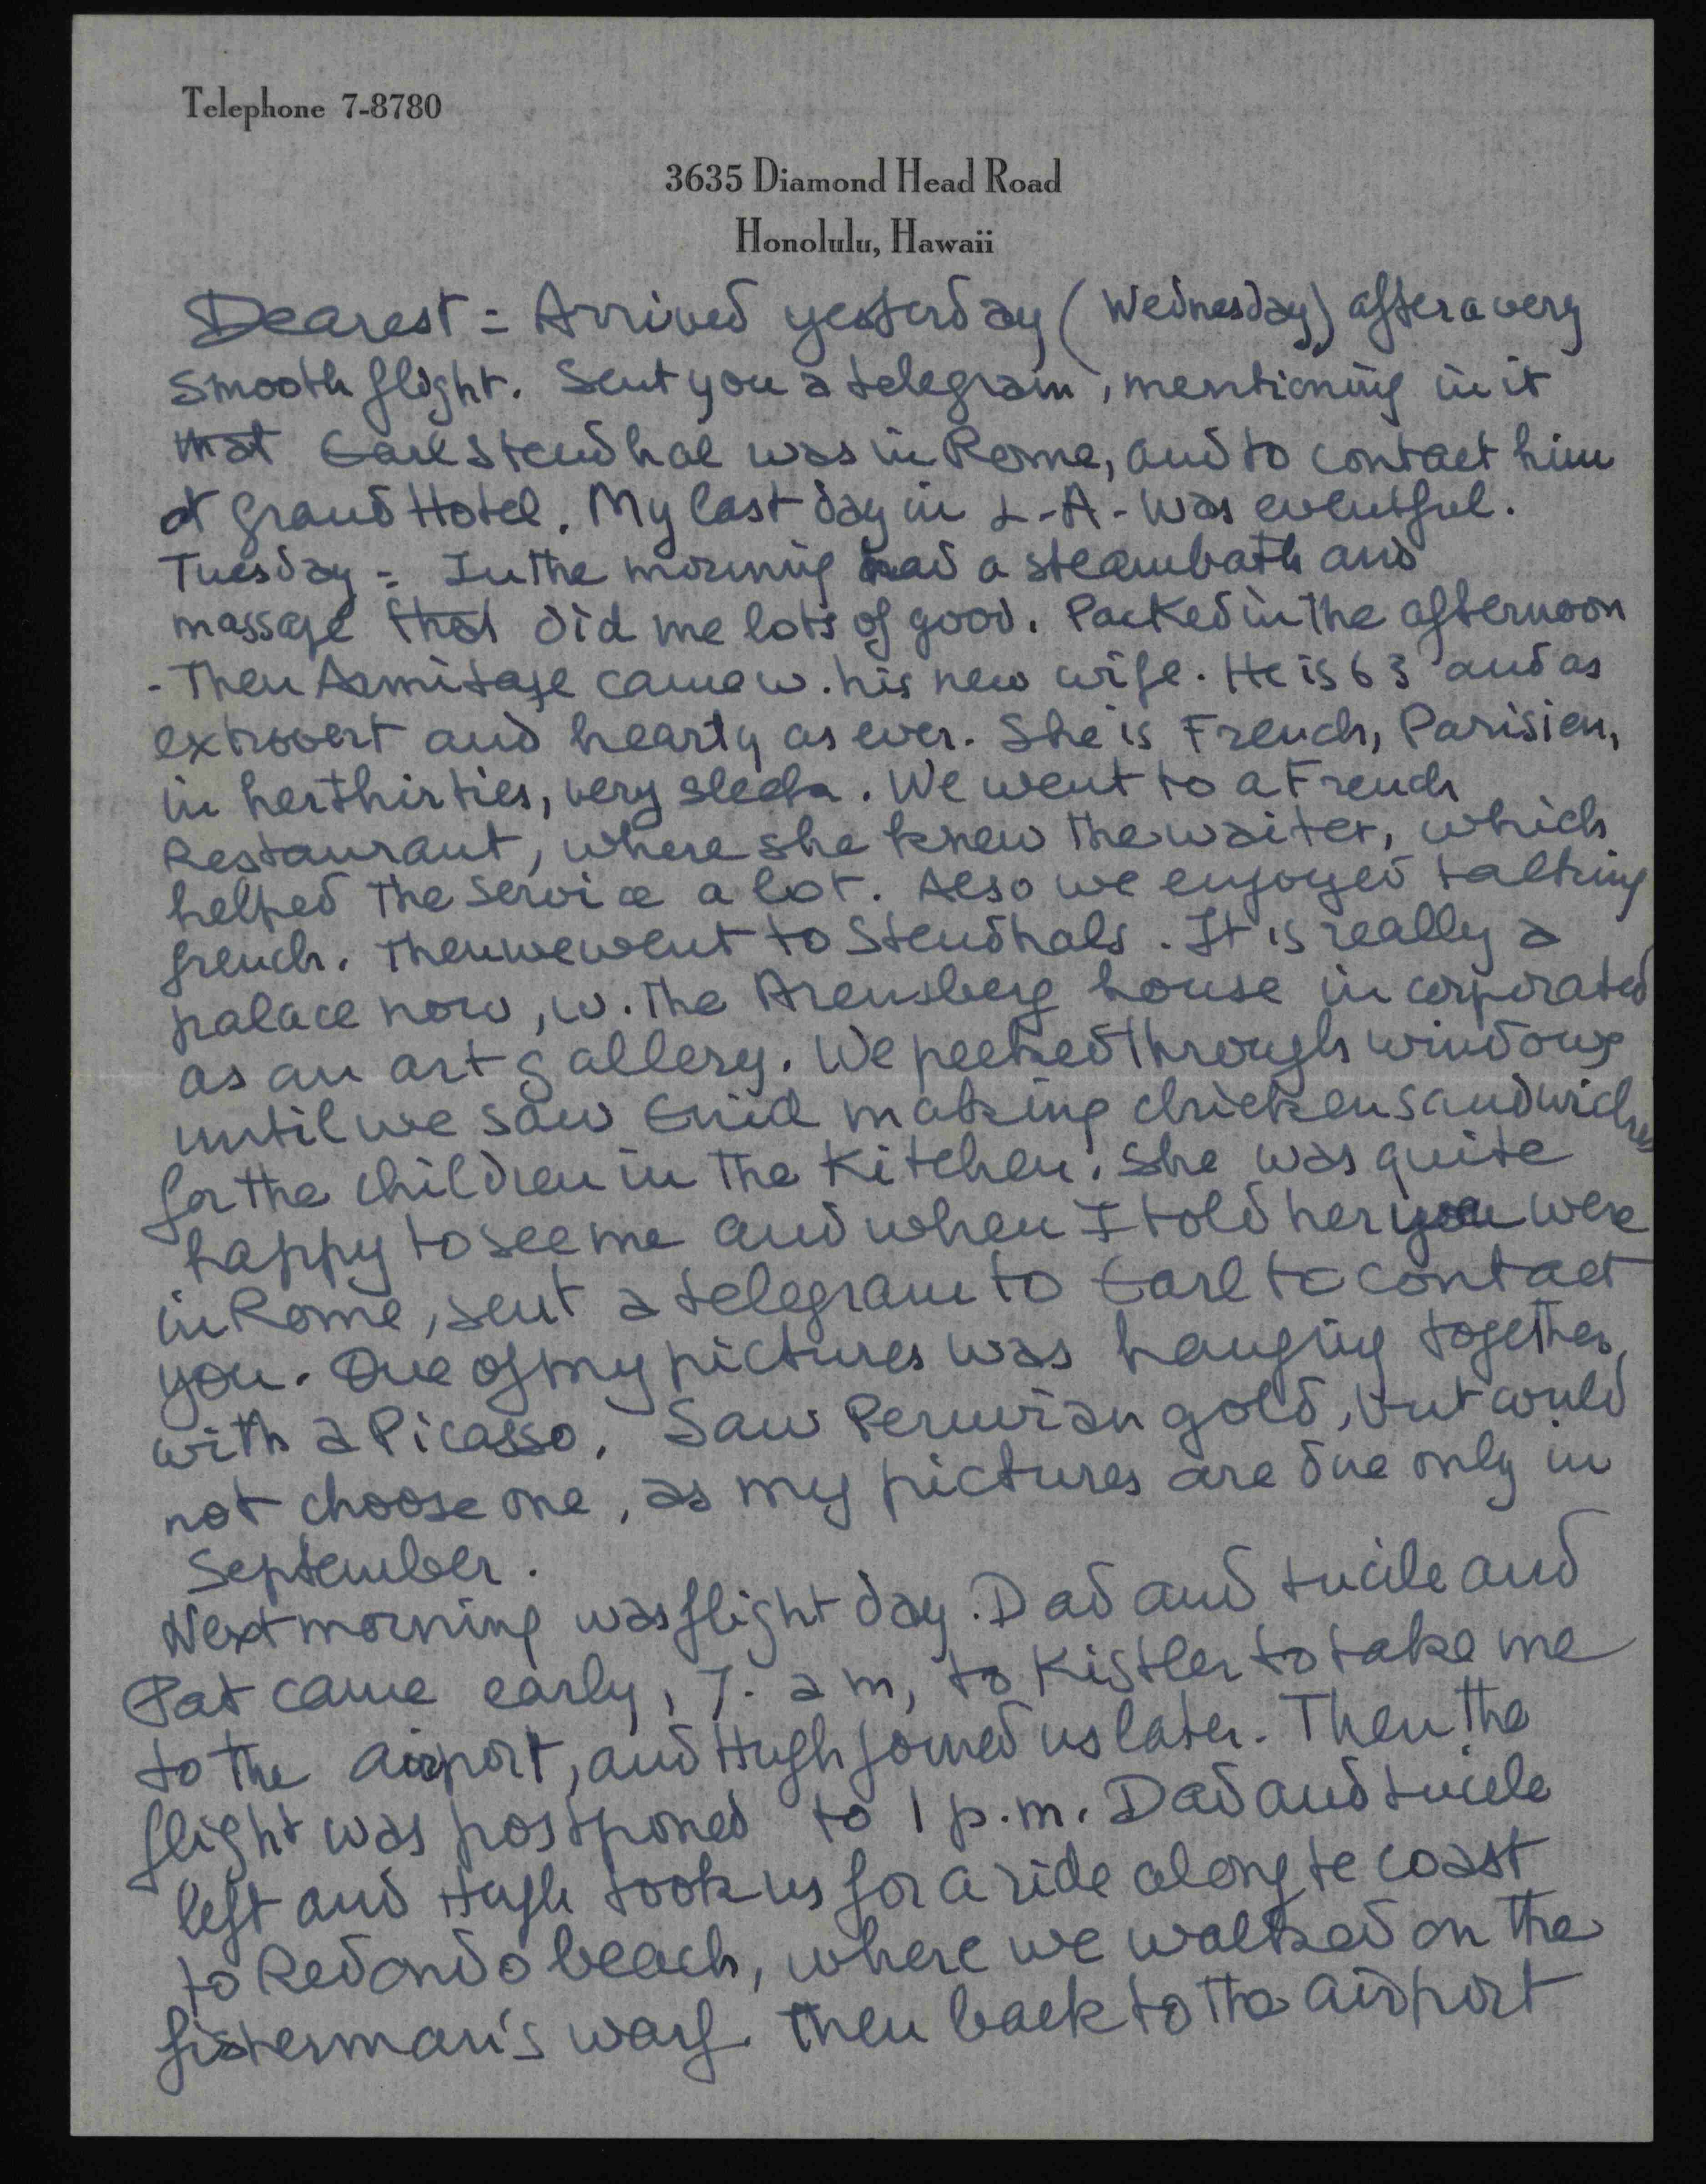 Telephone 7-8780
3635 Diamond Head Road
Honolulu, Hawaii
Dearest = Arrived yesterday (Wednesday) after a very
smooth flight. Sent you a telegram, mentioning in it
that Earl Stendhal was in Rome, and to contact him
at Grand Hotel. My last day in L-A- was eventful.
Tuesday = In the morning had a steambath and
massage that did me lots of good. Packed in the afternoon
- Then Armitage came w. his new wife. He is 63 and as
extrovert and hearty as ever. She is French, Parisien,
in her thirties, very sleek. We went to a French
Restaurant, where she knew the waiter, which
helped the service a lot. Also we enjoyed talking
french. Then we went to Stendhals. It is really a
palace now, w. the Arensberg house incorporated
as an art gallery. We peeked through windows
until we saw Enid making chicken sandwiches
for the children in the Kitchen. She was quite
happy to see me and when I told her you were
in Rome, sent a telegram to Earl to contact
you. One of my pictures was hanging together
with a Picasso. Saw Peruvian gold, but could
not choose one, as my pictures are due only in
September.
Next morning was flight day. Dad and Lucile and
Pat came early, 7. am, to Kistler to take me
to the airport, and Hugh joined us later. Then the
flight was postponed to 1 p.m. Dad and Lucile
left and Hugh took us for a ride along te coast
to Redondo beach, where we walked on the
fisherman's warf. Then back to the airport